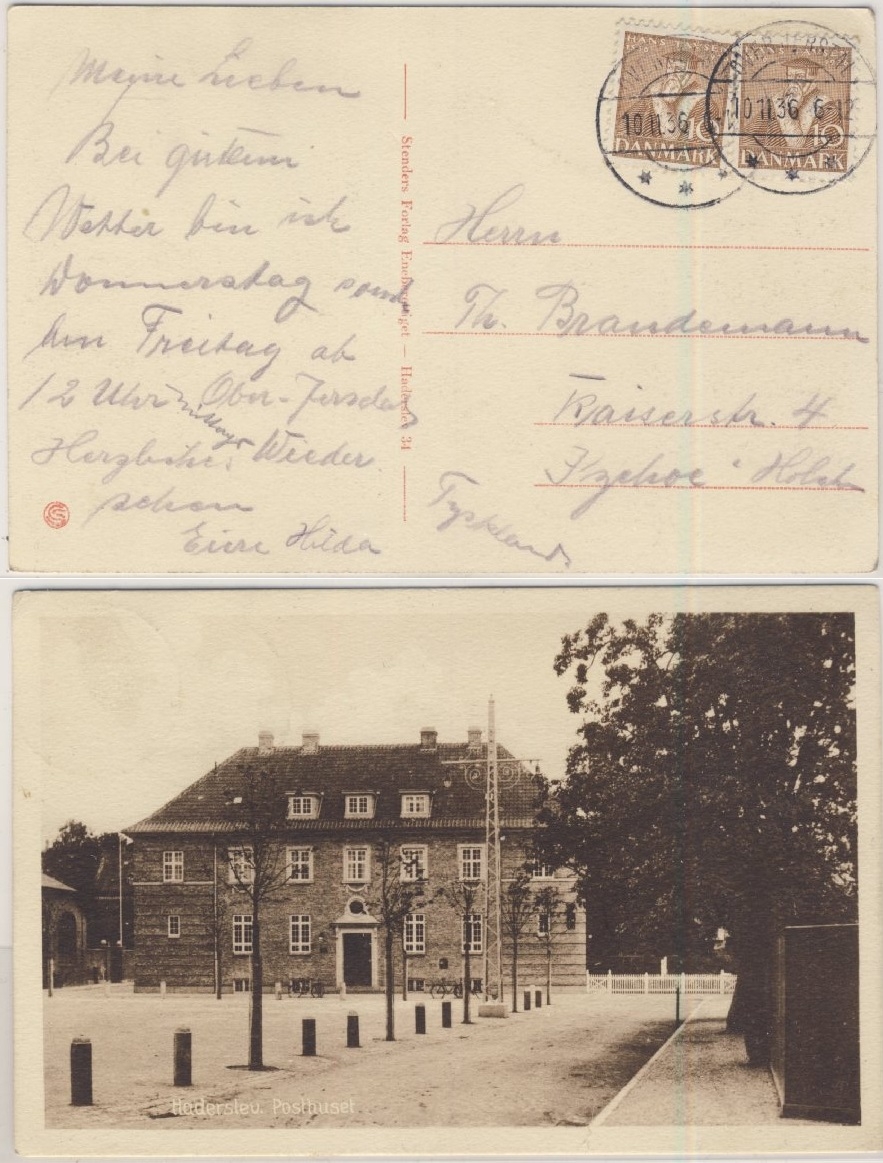 Meine Lieben
Bei gutem
Wetter bin ich
Donnerstag sonst
am Freitag ab
12 Uhr mittags Ober-Jersdal
Herzliches Wieder
sehen
Eure Hilda
Stenders Forlag Eneberettiget — Haderslev 34
HANS TAVSEN
10
DANMARK
HANS TAVSEN
10
DANMARK
10 11.36 6-12
10 11.36 6-12
Herrn
Th. Brandemann
Kaiserstr. 4
Itzehoe Holst
Tyskland
Haderslev. Posthuset